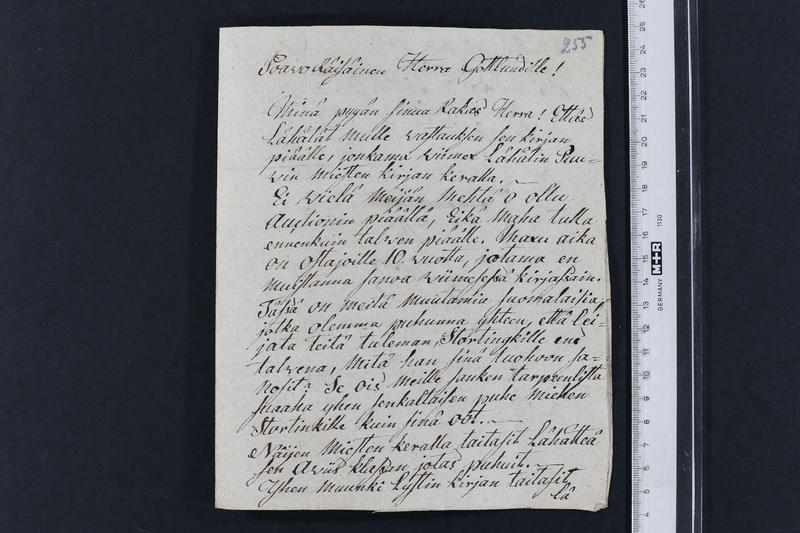 255
Poavo Räisäinen Herra Gottlundille!
Minä pyyän sinua Rakies Herra! Ettäs
Lähätät mulle vastauksen sen kirjan
piäälle, jonkama viimex Lähätin Puu=
vin miesten kirjan keralla. —
Ei vielä meijän Mehtä o ollu
Auctionin piäällä, Eikä maha tulla
ennenkuin talven piäälle. Maxu aika
on ostajoille 10. vuotta, jotama en
muistanna sanoa viimesessä kirjassain.
Tässä on meitä Muutamia suomalaisia,
jotka olemma puhunna yhteen, että lei=
jata teitä tuleman, Stortingkille enä
talvena, Mitä han sinä tuohoon sa=
nosit? Se ois meille sauken tarpeenlista
suaaha yhen senkaltaisen puhe miehen
Stortinkille kuin sinä oot. —
Näijen Miesten keralla taitasit Lähätteä
sen Aviis klassan jotas puhuit.
Yhen muunki Lystin kirjan taitasit
lä
GERMANY
M+R
1130
26
25
24
23
22
21
20
19
18
17
16
15
14
13
12
11
10
9
8
7
6
5
4